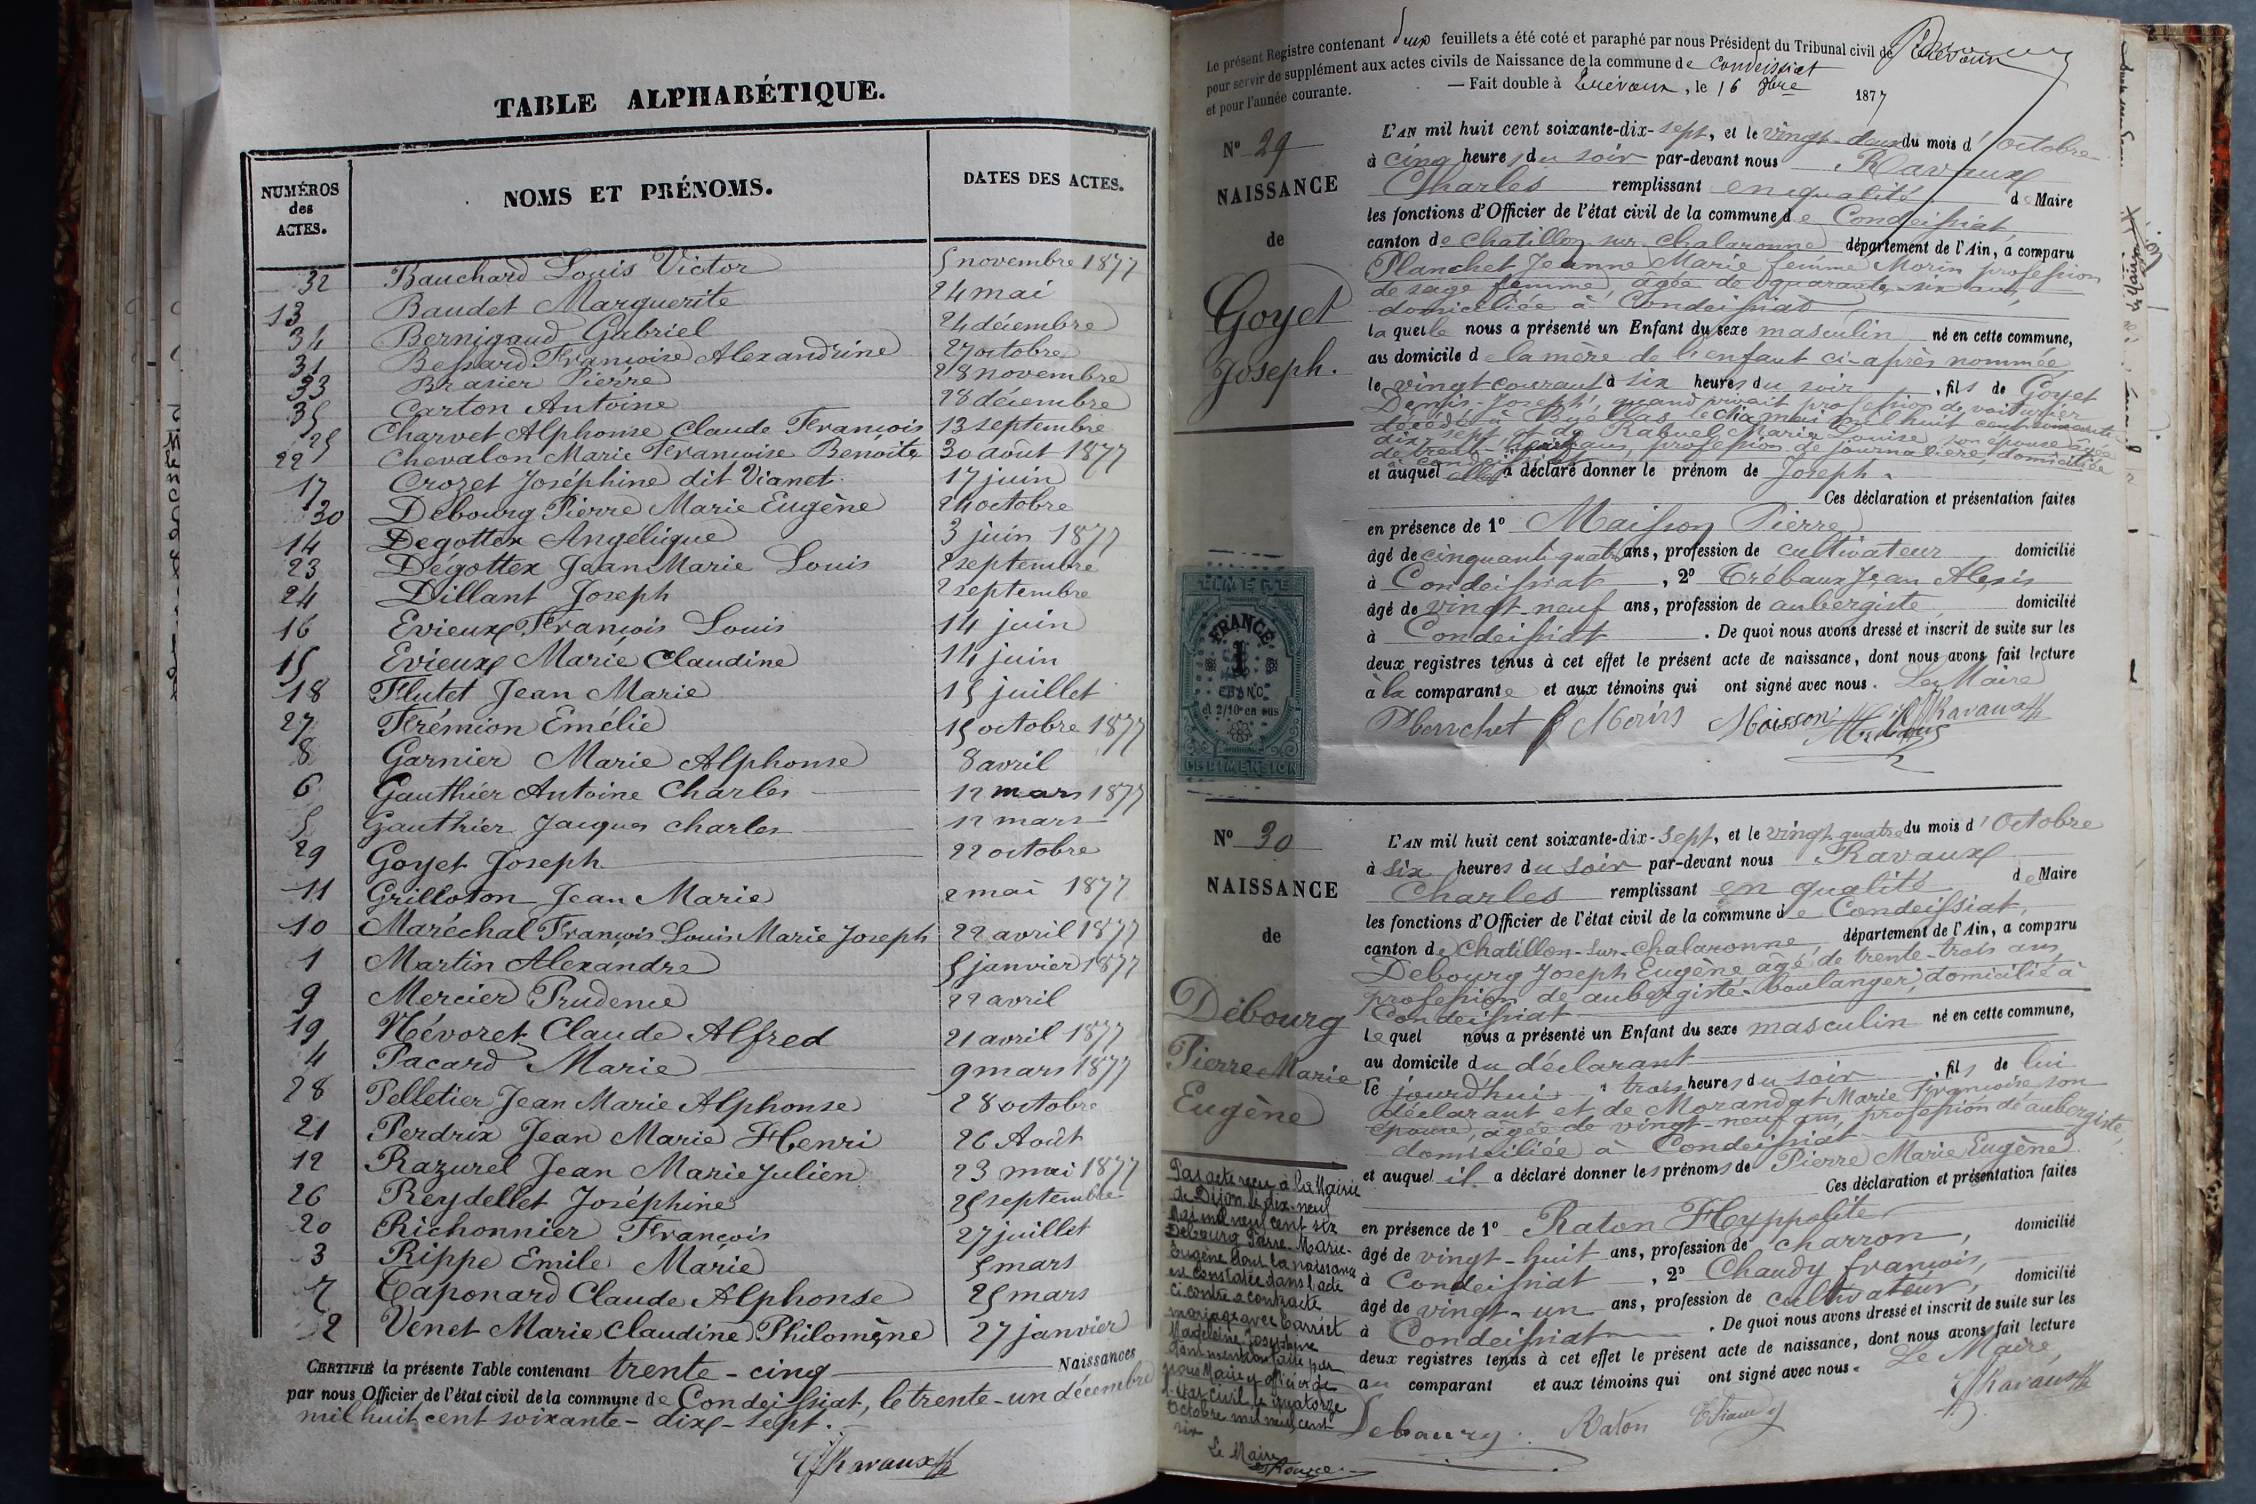 TABLE ALPHABÉTIQUE.
NUMÉROS des ACTES.
NOMS ET PRÉNOMS.
DATES DES ACTES.
32 Bauchard Louis Victor 5 novembre 1877
13 Baudet Marguerite 24 mai
34 Bernigaud Gabriel 24 décembre
31 Bessard Françoise Alexandrine 27 octobre
33 Brasier Pierre 28 novembre
35 Carton Antoine 28 décembre
25 Charvet Alphonse Claude François 13 septembre
22 Chevalon Marie Françoise Benoîte 30 août 1877
17 Crozet Joséphine dit Vianet 17 juin
30 Debourg Pierre Marie Eugène 24 octobre
14 Degottex Angélique 3 juin 1877
23 Dégottex Jean Marie Louis 2 septembre
24 Dillant Joseph 2 septembre
16 Evieux François Louis 14 juin
15 Evieux Marie Claudine 14 juin
18 Flutet Jean Marie 15 juillet
27 Frémion Emélie 15 octobre 1877
8 Garnier Marie Alphonse 8 avril
6 Gauthier Antoine Charles 12 mars 1877
5 Gauthier Jacques Charles 12 mars
29 Goyet Joseph 22 octobre
11 Grilloton Jean Marie 2 mai 1877
10 Maréchal François Louis Marie Joseph 22 avril 1877
1 Martin Alexandre 5 janvier 1877
9 Mercier Prudence 22 avril
19 Névoret Claude Alfred 21 avril 1877
4 Pacard Marie 9 mars 1877
28 Pelletier Jean Marie Alphonse 28 octobre
21 Perdrix Jean Marie Henri 26 Août
12 Razurel Jean Marie Julien 23 mai 1877
26 Reydellet Joséphine 25 septembre
20 Richonnier François 27 juillet
3 Rippe Emile Marie 5 mars
7 Taponard Claude Alphonse 25 mars
2 Venet Marie Claudine Philomène 27 janvier
CERTIFIÉ la présente Table contenant trente-cinq Naissances
par nous Officier de l'état civil de la commune de Condeissiat, le trente-un décembre
mil huit cent soixante-dix-sept.
Ravaux
Le présent Registre contenant deux feuillets a été coté et paraphé par nous Président du Tribunal civil de Trévoux
pour servir de supplément aux actes civils de Naissance de la commune de Condeissiat
et pour l'année courante. — Fait double à Trévoux, le 16 1877
N° 29
NAISSANCE
de
Goyet
Joseph.
L'AN mil huit cent soixante-dix-sept, et le vingt-deux du mois d'octobre
à cinq heures du soir par-devant nous Ravaux
Charles remplissant en qualité de Maire
les fonctions d'Officier de l'état civil de la commune de Condeissiat,
canton de Chatillon sur Chalaronne département de l'Ain, a comparu
Planchet Jeanne Marie femme Morin profession
de sage femme, âgée de quarante-six ans,
domiciliée à Condeissiat
laquelle nous a présenté un Enfant du sexe masculin né en cette commune,
au domicile de la mère de l'enfant ci-après nommée,
le vingt courant à six heures du soir, fils de Goyet
Denis-Joseph, quand vivait profession de voiturier
décédé à le dix mai mil huit cent soixante
dix-sept, et de Rabuel Marie Louise son épouse âgée
de trente- ans, profession de journalière, domiciliée
à Condeissiat
et auquel elle a déclaré donner le prénom de Joseph.
Ces déclaration et présentation faites
en présence de 1° Maisson Pierre
âgé de cinquante-quatre ans, profession de cultivateur domicilié
à Condeissiat, 2° Trébaux Jean Alexis
âgé de vingt-neuf ans, profession de aubergiste domicilié
à Condeissiat. De quoi nous avons dressé et inscrit de suite sur les
deux registres tenus à cet effet le présent acte de naissance, dont nous avons fait lecture
à la comparante et aux témoins qui ont signé avec nous. Le Maire
Planchet f Morin Moisson Ravaux
TIMBRE
FRANCE
1
FRANC
et 2/10 en sus
DE DIMENSION
N° 30
NAISSANCE
de
Débourg
Pierre Marie
Eugène
L'AN mil huit cent soixante-dix-sept, et le vingt-quatre du mois d'Octobre
à six heures du soir par-devant nous Ravaux
Charles remplissant en qualité de Maire
les fonctions d'Officier de l'état civil de la commune de Condeissiat,
canton de Chatillon-sur-Chalaronne, département de l'Ain, a comparu
Debourg Joseph Eugène âgé de trente-trois ans,
profession de aubergiste-boulanger, domicilié à
Condeissiat
lequel nous a présenté un Enfant du sexe masculin né en cette commune,
au domicile du déclarant
le jourd'hui à trois heures du soir, fils de lui
déclarant et de Morandat Marie Françoise son
épouse, âgée de vingt-neuf ans, profession de aubergiste,
domiciliée à Condeissiat
et auquel il a déclaré donner les prénoms de Pierre Marie Eugène
Ces déclaration et présentation faites
en présence de 1° Raton Hyppolite
âgé de vingt-huit ans, profession de charron, domicilié
à Condeissiat, 2° Chaudy François,
âgé de vingt-un ans, profession de cultivateur, domicilié
à Condeissiat. De quoi nous avons dressé et inscrit de suite sur les
deux registres tenus à cet effet le présent acte de naissance, dont nous avons fait lecture
au comparant et aux témoins qui ont signé avec nous. Le Maire,
Debourg Raton Chaudy Ravaux
Par acte reçu à la Mairie
de Dijon le dix-neuf
Mai mil neuf cent six
Debourg Pierre-Marie-
Eugène dont la naissance
est constatée dans l'acte
ci-contre a contracté
mariage avec
Madeleine Joséphine
dont mention faite par
nous Maire officier de
l'état civil le quatorze
Octobre mil neuf cent
six
Le Maire